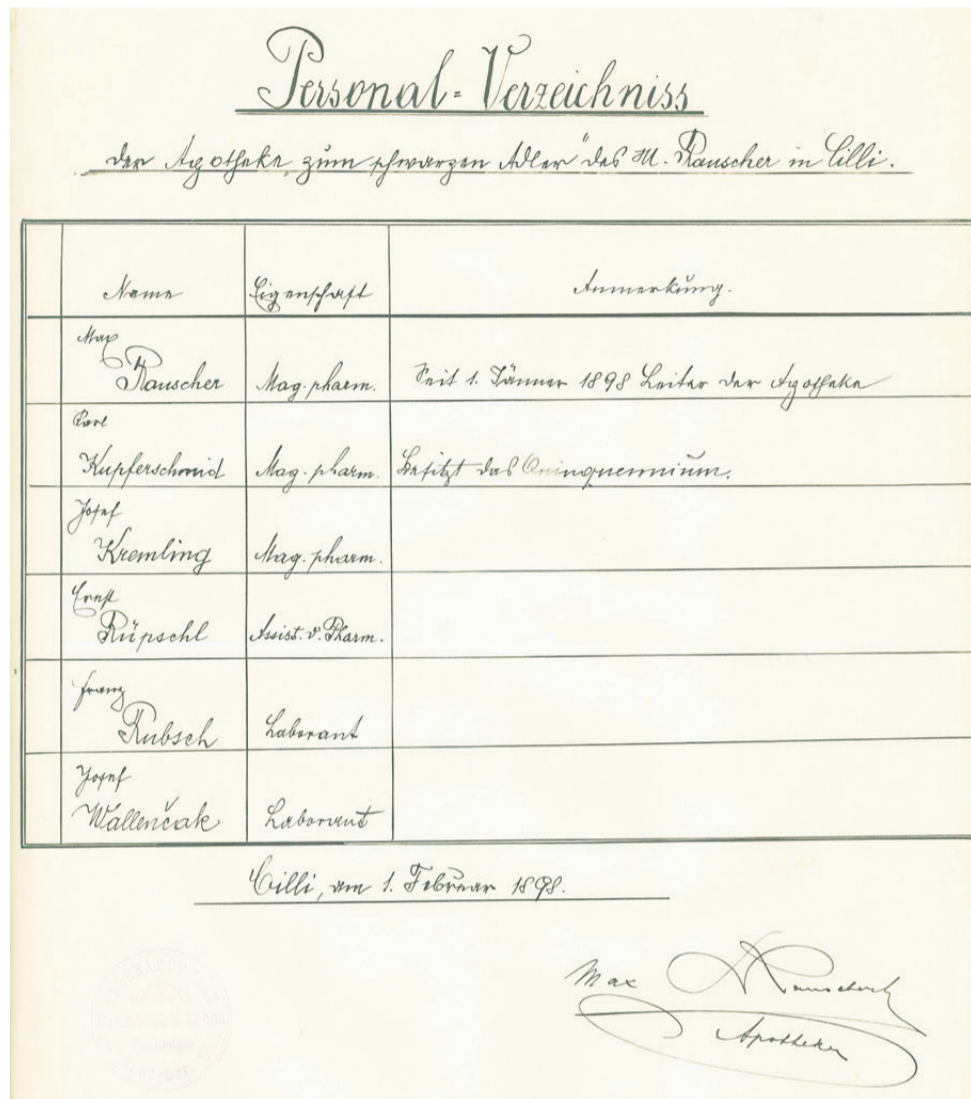 Personal-Verzeichniss
der Apotheke „zum schwarzen Adler" des M. Rauscher in Cilli.
Name Eigenschaft Anmerkung.
Max
Rauscher Mag. pharm. Seit 1. Jänner 1898 Leiter der Apotheke
Carl
Kupferschmid Mag. pharm. Besitzt das Quinquennium.
Josef
Kremling Mag. pharm.
Ernst
Rüpschl Assist. d. Pharm.
Franz
Rubsch Laborant
Josef
Wallenčak Laborant
Cilli, am 1. Februar 1898.
Max Rauscher
Apotheker